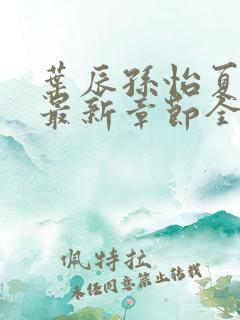 葉辰孫怡夏
最新章節全
佩特拉
未经同意禁止转载